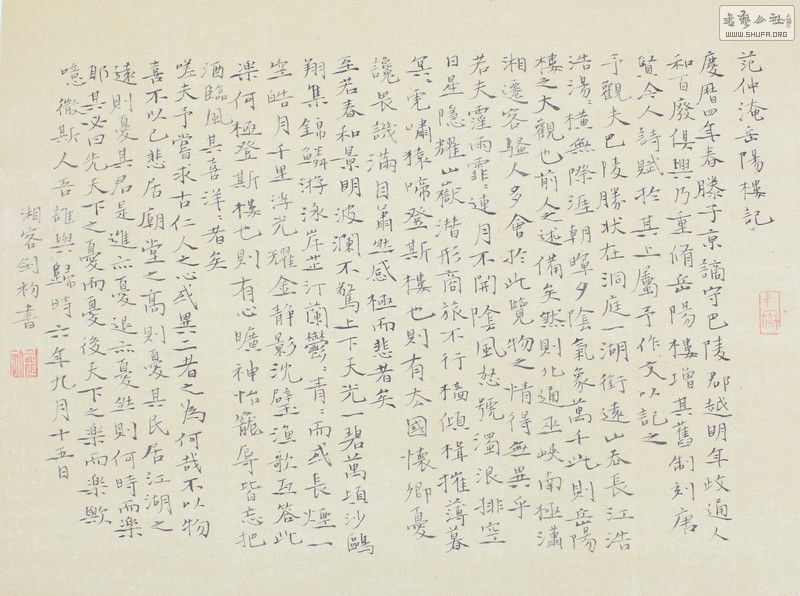 书艺公社
WWW.SHUFA.ORG
范仲淹岳陽樓記。
慶曆四年春滕子京謫守巴陵郡越明年政通人
和百廢俱興乃重脩岳陽樓增其舊制刻唐
賢今人詩賦於其上屬予作文以記之
予觀夫巴陵勝狀在洞庭一湖銜遠山吞長江浩
浩湯〻橫無際涯朝暉夕陰氣象萬千此則岳陽
樓之大觀也前人之述備矣然則北通巫峽南極瀟
湘遷客騷人多會於此覽物之情得無異乎
若夫霪雨霏〻連月不開陰風怒號濁浪排空
日星隱耀山嶽潛形商旅不行檣傾楫摧薄暮
冥〻虎嘯猿啼登斯樓也則有去國懷鄉憂
讒畏譏滿目蕭然感極而悲者矣
至若春和景明波瀾不驚上下天光一碧萬頃沙鷗
翔集錦鱗游泳岸芷汀蘭鬱〻青〻而或長煙一
空皓月千里浮光耀金靜影沈璧漁歌互答此
樂何極登斯樓也則有心曠神怡寵辱皆忘把
酒臨風其喜洋〻者矣
嗟夫予嘗求古仁人之心或異二者之為何哉不以物
喜不以己悲居廟堂之高則憂其民居江湖之
遠則憂其君是進亦憂退亦憂然則何時而樂
耶其必曰先天下之憂而憂後天下之樂而樂歟
噫微斯人吾誰與歸時六年九月十五日
湘客劍書